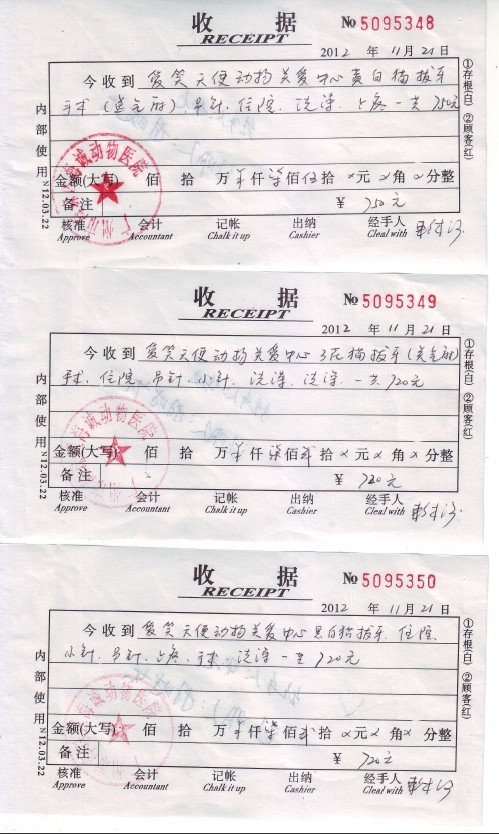 收 据 № 5095348
RECEIPT
2012 年 11 月 21 日
今收到 爱笑天使动物关爱中心黄白猫拔牙
手术(含气麻)吊针、住院、洗澡、上疼一共750元
金额(大写) 佰 拾 万 仟柒佰伍拾 元 角 分整
备注 ¥ 750元
核准 会计 记帐 出纳 经手人
Approve Accountant Chalk it up Cashier Cleal with
内部使用 N12.03.22
①存根(白) ②顾客(红)
动物医院
收 据 № 5095349
RECEIPT
2012 年 11 月 21 日
今收到 爱笑天使动物关爱中心 三花猫拔牙(含气麻)
手术、住院、吊针、小针、洗澡、洗澡、一共720元
金额(大写) 佰 拾 万 仟柒佰贰拾 元 角 分整
备注 ¥ 720元
核准 会计 记帐 出纳 经手人
Approve Accountant Chalk it up Cashier Cleal with
内部使用 N12.03.22
①存根(白) ②顾客(红)
诚动物医院
收 据 № 5095350
RECEIPT
2012 年 11 月 21 日
今收到 爱笑天使动物关爱中心黑白猫拔牙、住院、
小针、吊针、上疼、手术、洗澡一共720元
金额(大写) 佰 拾 万 仟柒佰贰拾 元 角 分整
备注 ¥ 720元
核准 会计 记帐 出纳 经手人
Approve Accountant Chalk it up Cashier Cleal with
内部使用 N12.03.22
①存根(白) ②顾客(红)
诚动物医院